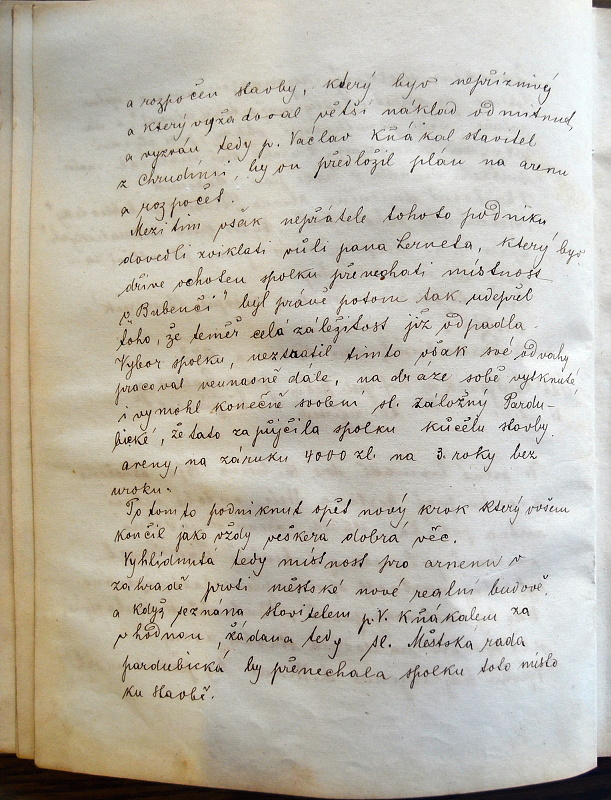 a rozpočen stavby, který byv nepřiznivý
a který vyžadoval větší náklad odmítnut,
a vyzván tedy p. Václav Kňákal stavitel
z Chrudimi, by on předložil plán na arenu
a rozpočet.
Mezitim však nepřátele tohoto podniku
dovedli zviklati vůli pana Lerneta, který byv
dříve ochoten spolku přenechati místnost
v "Bubenči" byl právě potom tak
toho, že teměř celá záležitost již odpadla.
Výbor spolku, neztratil tímto však své odvahy
pracovat neunavně dále, na dráze sobě vytknuté,
i vymohl konečně svolení sl. záložny Pardu-
bické, že tato zapůjčila spolku kůčelu stavby
areny, na záruku 4000 zl. na 3. roky bez
uroku.
Po tomto podniknut opět nový krok který vvšem
končil jako vždy veškerá dobrá věc.
Vyhlídnutá tedy místnost pro arnenu v
zahradě proti městské nové realní budově.
a když seznána stavitelem p. V. Kňákalem za
vhodnou, žádána tedy sl. Městska rada
pardubická by přenechala spolku toto místo
ku stavbě.